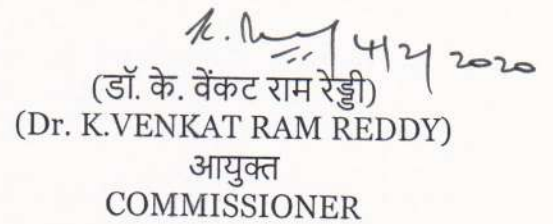 4/2/2020
(डॉ. के. वेंकट राम रेड्डी)
(Dr. K.VENKAT RAM REDDY)
आयुक्त
COMMISSIONER